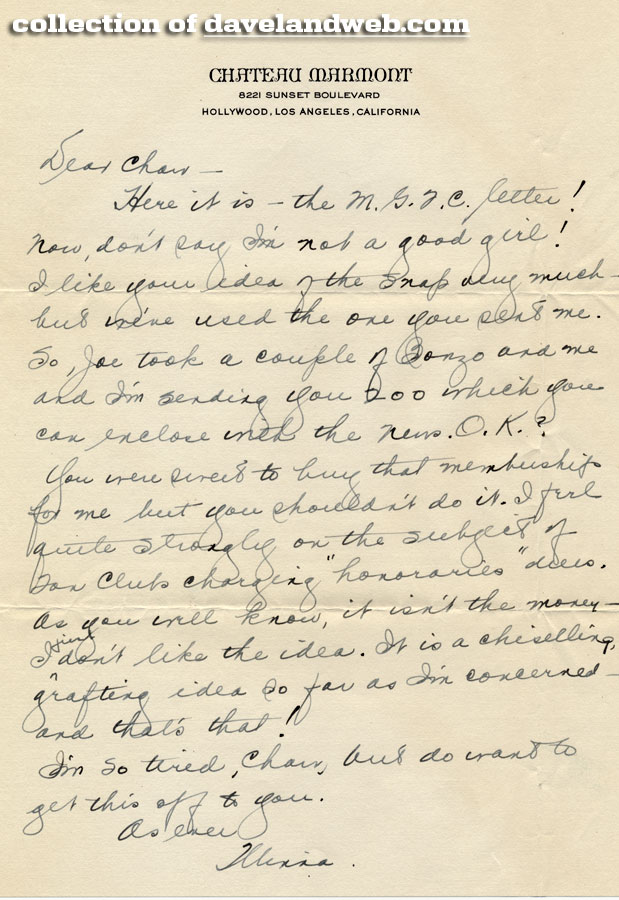 collection of davelandweb.com
CHATEAU MARMONT
8221 SUNSET BOULEVARD
HOLLYWOOD, LOS ANGELES, CALIFORNIA
Dear Chaw —
Here it is — the M.G.F.C. letter!
Now, don't say I'm not a good girl!
I like your idea of the snap very much
but we've used the one you sent me.
So, Joe took a couple of Bonzo and me
and I'm sending you 200 which you
can enclose with the News. O.K.?
You were sweet to buy that membership
for me but you shouldn't do it. I feel
quite strongly on the subject of
Fan Clubs charging "honoraries" dues.
As you well know, it isn't the money —
I just don't like the idea. It is a chiselling,
grafting idea so far as I'm concerned —
and that's that!
I'm so tired, Chaw, but do want to
get this off to you.
As ever
Minna.